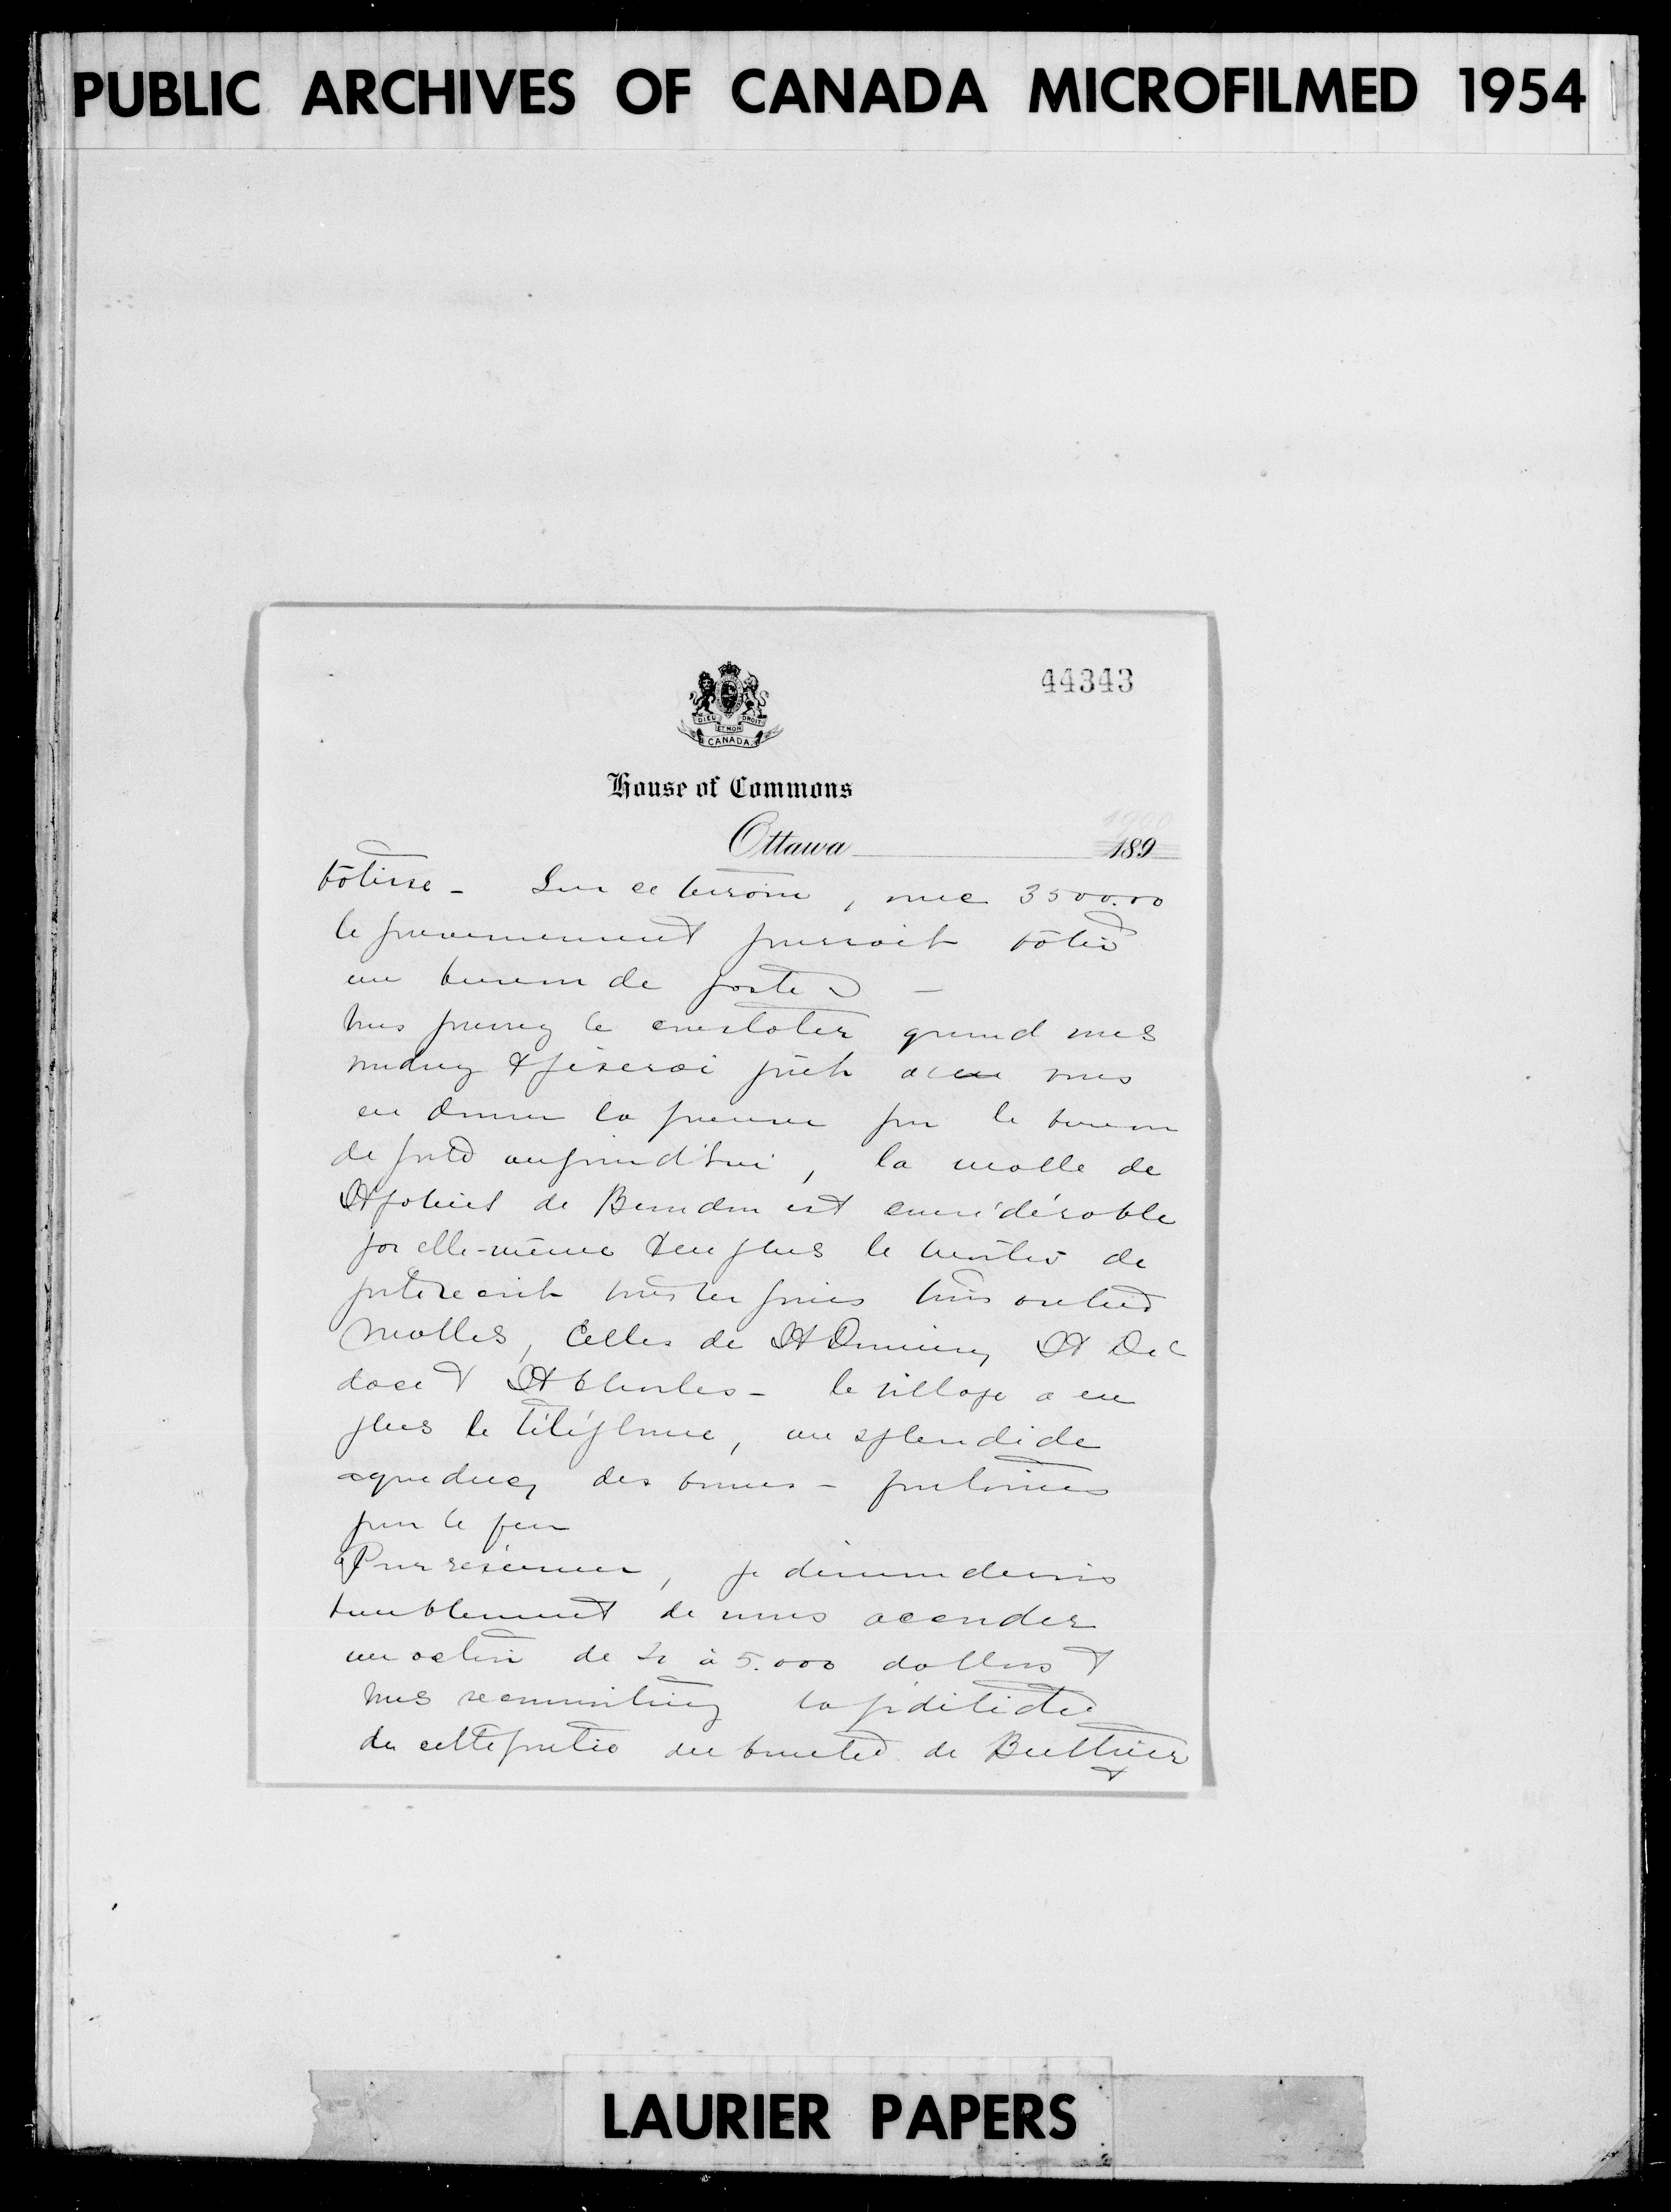 PUBLIC ARCHIVES OF CANADA MICROFILMED 1954
44343
DIEU ET MON DROIT
CANADA
House of Commons
1900
Ottawa 189
bâtisse - Sur ce terrain, avec 3500.00
le gouvernement pourrait bâtir
un bureau de poste -
Vous pourrez le constater quand vous
voudrez & je serai prêt à vous
en donner la preuve par le bureau
de poste aujourd'hui, la malle de
St Gabriel de Brandon est considérable
par elle-même & en plus le maître de
poste reçoit tous les jours trois autres
malles, Celles de St Damien, St
& St Charles - le village a en
plus le téléphone, un splendide
aqueduc, des bornes - fontaines
pour le feu
Pour résumer, je demanderais
humblement de nous accorder
un octroi de 4 à 5.000 dollars &
vous reconnaitriez la fidélité
de cette partie du comté de Berthier
&
LAURIER PAPERS